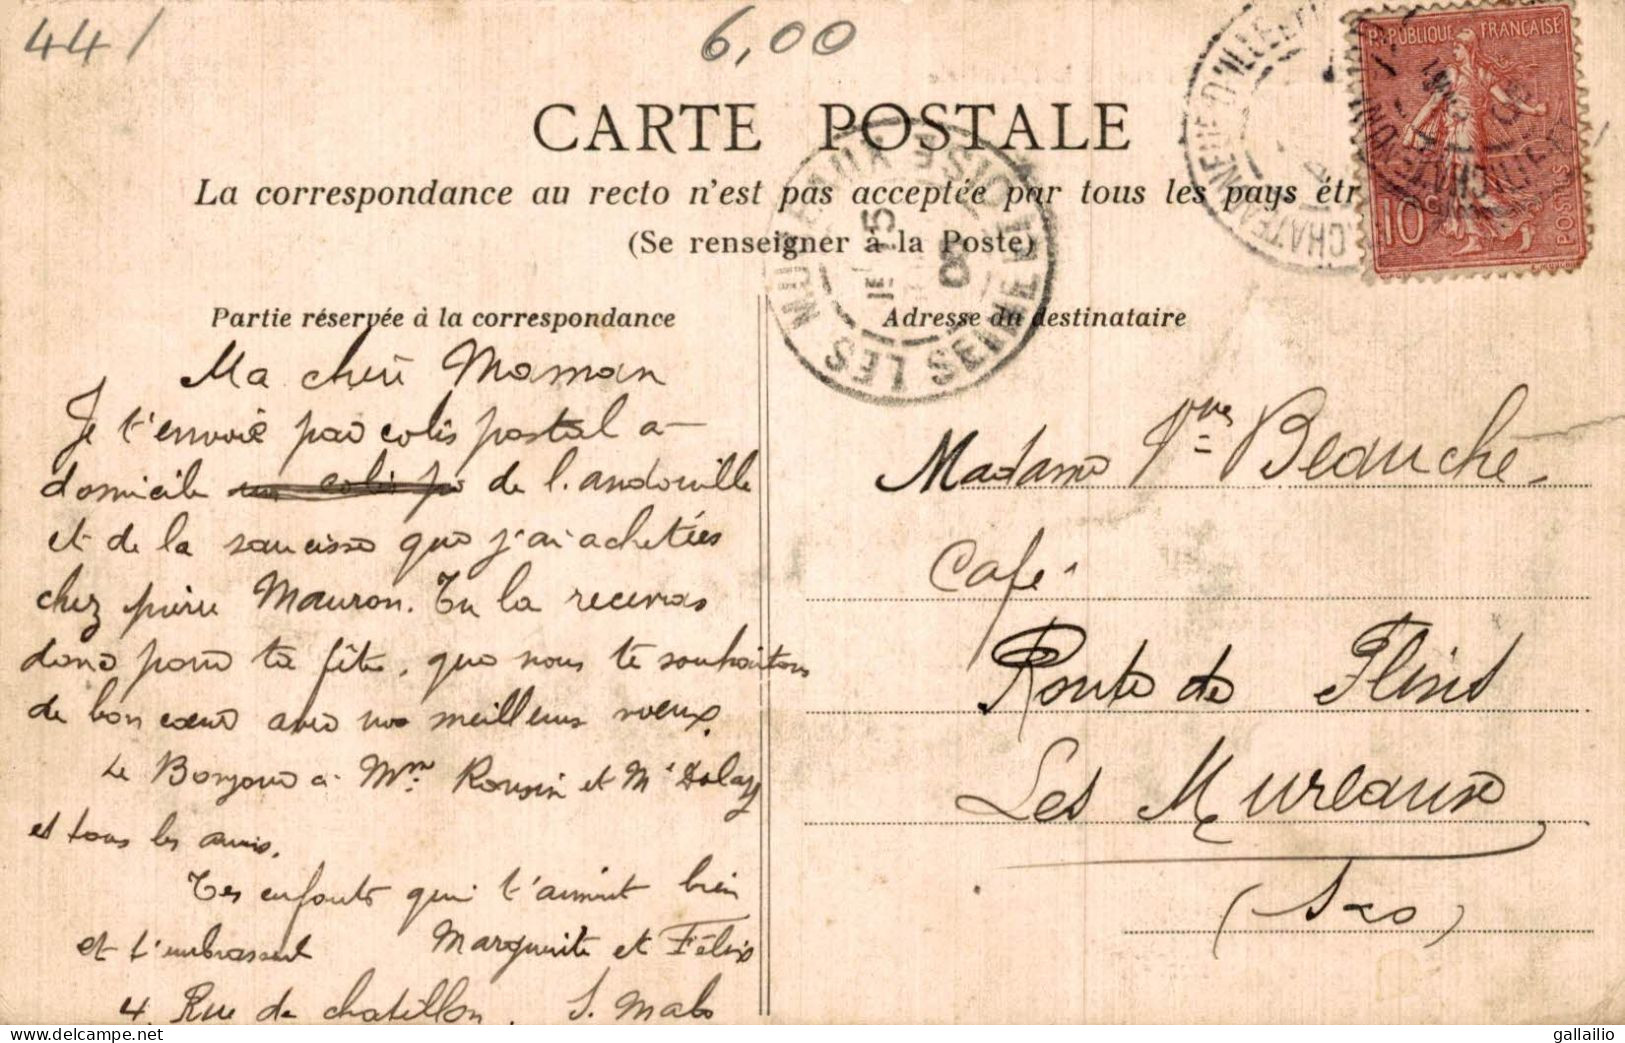 44/
6,00
CARTE POSTALE
La correspondance au recto n'est pas acceptée par tous les pays étr
(Se renseigner à la Poste)
RÉPUBLIQUE FRANÇAISE
10c
POSTES
LES MUREAUX
SEINE ET OISE
15
08
Partie réservée à la correspondance
Adresse du destinataire
Ma chère Maman
Je t'envoie par colis postal a
domicile de l'andouille
et de la saucisse que j'ai achetées
chez pierre Mauron. Tu la recevras
donc pour ta fête, que nous te souhaitons
de bon cœur avec nos meilleurs voeux.
Le Bonjour a Mme et Mr
et tous les amis.
Tes enfants qui t'aiment bien
et t'embrassent Marguerite et Félix
4, Rue de chatillon. S. Malo
Madame Vve Beauché
Café
Route de Flins
Les Mureaux
(S&O)
gallailio